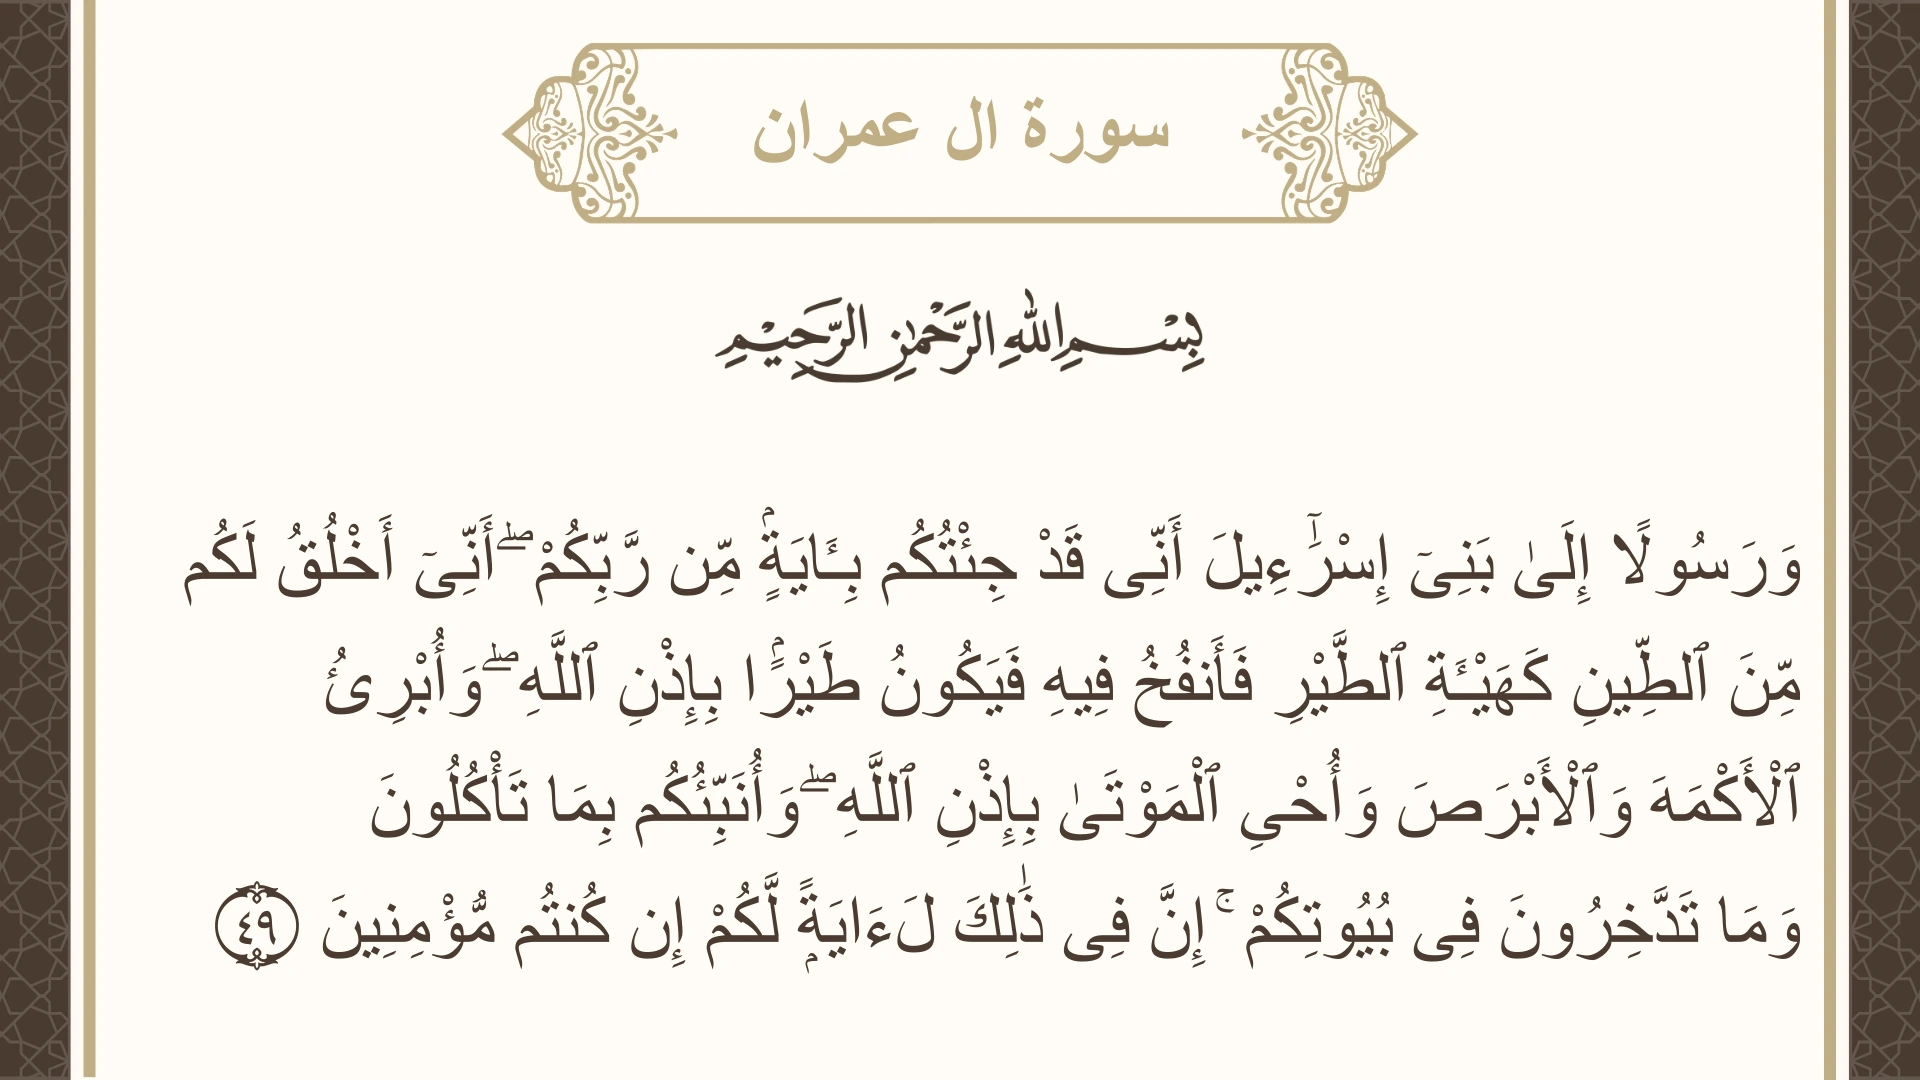 سورة ال عمران
بِسْمِ اللهِ الرَّحْمٰنِ الرَّحِيْمِ
وَرَسُولًا إِلَىٰ بَنِىٓ إِسْرَٰٓءِيلَ أَنِّى قَدْ جِئْتُكُم بِـَٔايَةٍۢ مِّن رَّبِّكُمْ ۖ أَنِّىٓ أَخْلُقُ لَكُم
مِّنَ ٱلطِّينِ كَهَيْـَٔةِ ٱلطَّيْرِ فَأَنفُخُ فِيهِ فَيَكُونُ طَيْرًۢا بِإِذْنِ ٱللَّهِ ۖ وَأُبْرِئُ
ٱلْأَكْمَهَ وَٱلْأَبْرَصَ وَأُحْىِ ٱلْمَوْتَىٰ بِإِذْنِ ٱللَّهِ ۖ وَأُنَبِّئُكُم بِمَا تَأْكُلُونَ
وَمَا تَدَّخِرُونَ فِى بُيُوتِكُمْ ۚ إِنَّ فِى ذَٰلِكَ لَـَٔايَةًۭ لَّكُمْ إِن كُنتُم مُّؤْمِنِينَ ٤٩